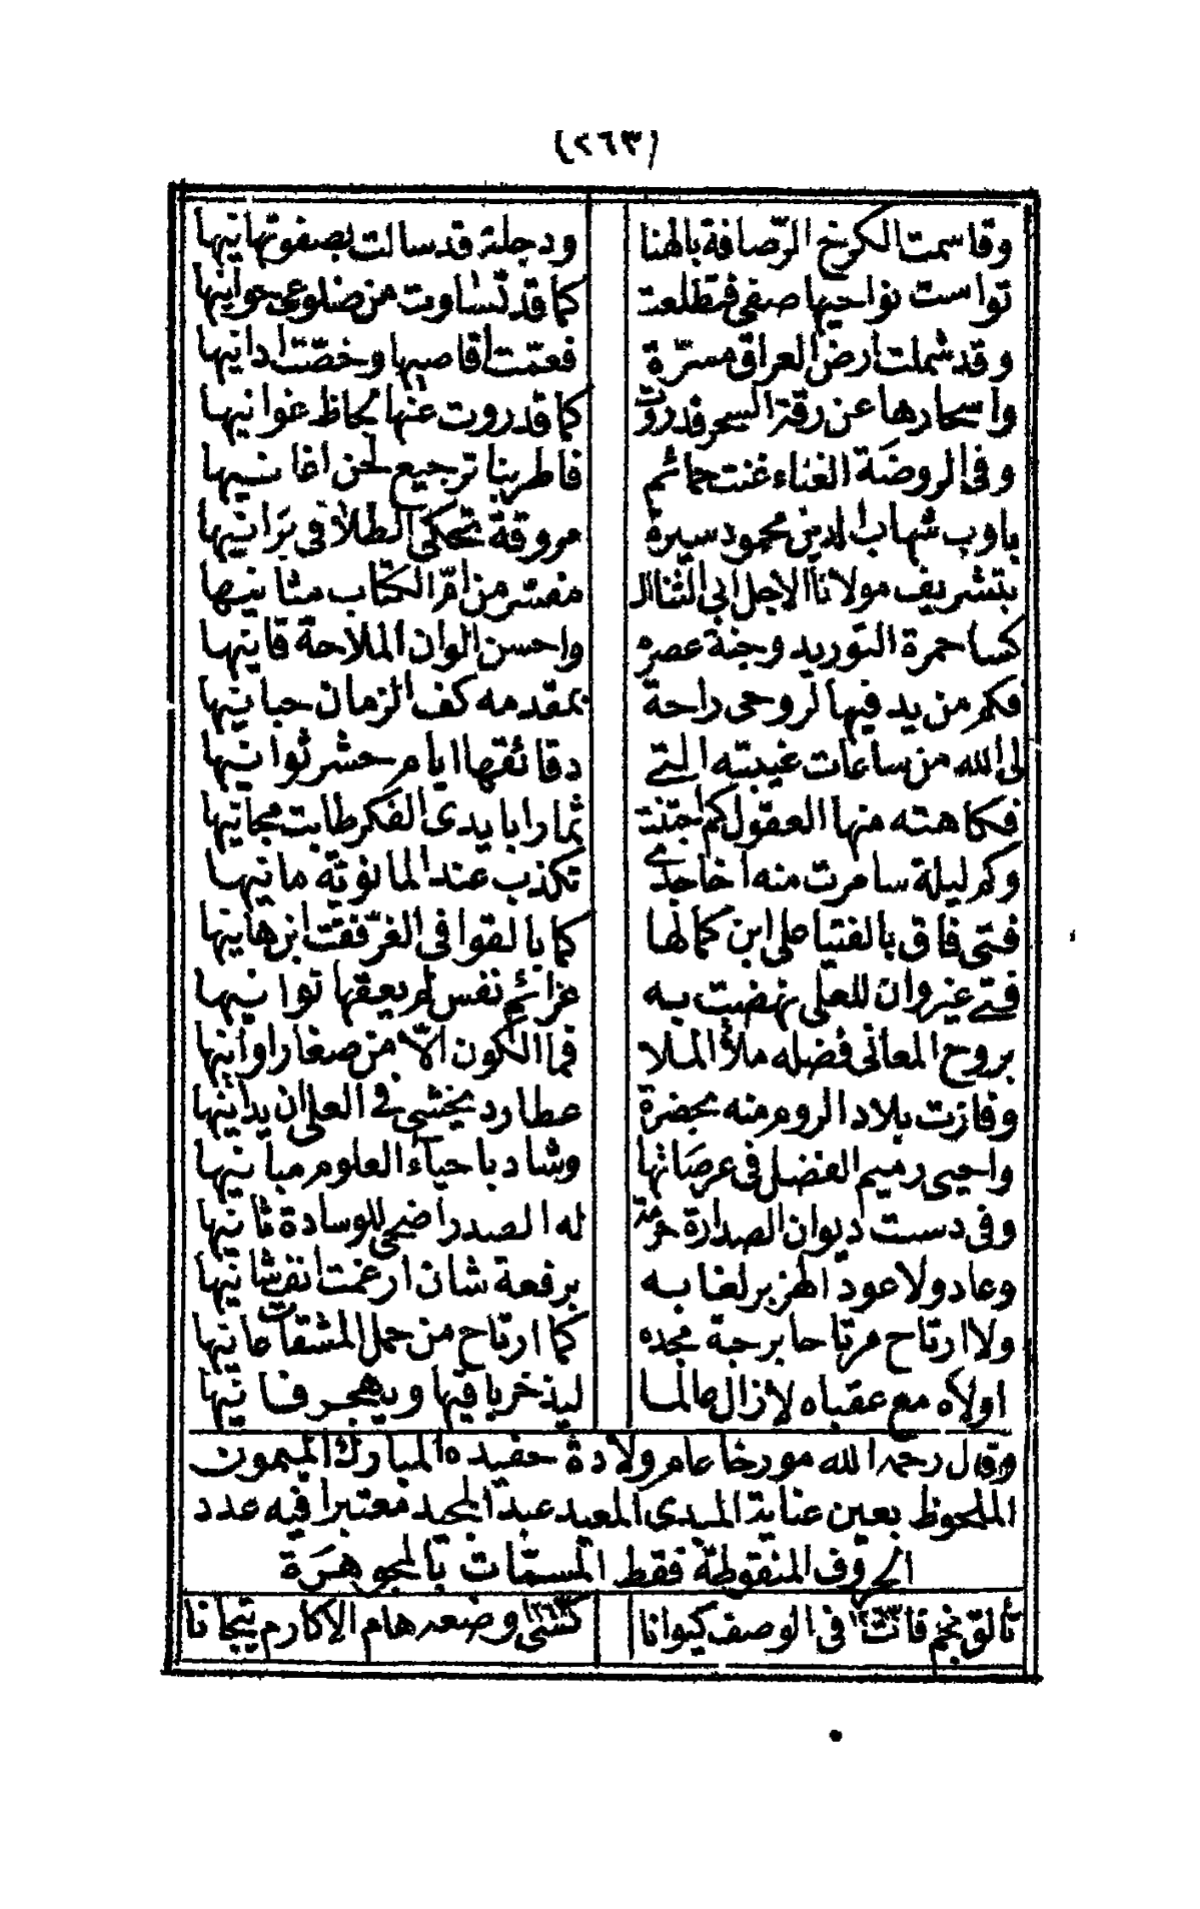 (٢٦٣)
وقاسمت الكرخ الرصافة بالهنا ودجلة قد سالت بصفوتها تيها
تواست نواحيها صفى فتطلعت كما قد تساوت من ضلوعى حوانيها
وقد شملت ارض العراق مسرّة فعمّت اقاصيها وخصّت ادانيها
واسحارها عن رقة السحر قد روت كما قد روت عنها لحاظ غوانيها
وفى الروضة الغناء غنت حمائم فاطربنا ترجيع لحن اغانيها
باوب شهاب الدين محمود سيرة مروقة تحكى الطلا فى برانيها
بتشريف مولانا الاجل ابى الثنا الـ مفسر من امّ الكتاب مثانيها
كسا حمرة التوريد وجنة عصره واحسن الوان الملاحة قانيها
فكم من يد فيها لروحى راحة بمقدمه كف الزمان حبانيها
لى الله من ساعات غيبته التى دقائقها ايام حشر ثوانيها
فكاهته منها العقول كم اجتنت ثمارا بايدى الفكر طابت مجانيها
وكم ليلة سامرت منه اخا حجى تكذب عند المانوية مانيها
فتى فاق بالفتيا على ابن كمالها كما بالقوافى الغرّ فقت ابن هانيها
فتى غير وان للعلى نهضت به عزائم نفس لم يعقها توانيها
بروح المعانى فضله ملأ الملا فما الكون الّا من صغار اوانيها
وفازت بلاد الروم منه بحضرة عطارد يخشى فى العلى ان يدانيها
واحيى رميم الفضل فى عرصاتها وشاد باحياء العلوم مبانيها
وفى دست ديوان الصدارة حرمة له الصدر اضحى للوسادة ثانيها
وعاد ولا عود الهزبر لغابه برفعة شان ارغمت انف شانيها
ولا ارتاح مرتاحا برحبة مجده كما ارتاح من حمل المشقات عانيها
اولاه مع عقباه لازال عالما ليذخر باقيها ويهجر فانيها
وقال رحمه الله مورخا عام ولادة حفيده المبارك الميمون
الملحوظ بعين عناية المبدى المعيد عبد المجيد معتبرا فيه عدد
الحروف المنقوطة فقط المسمّات بالمجوهرة
تألق نجم فاق فى الوصف كيوانا كسى وضعه هام الاكارم تيجانا